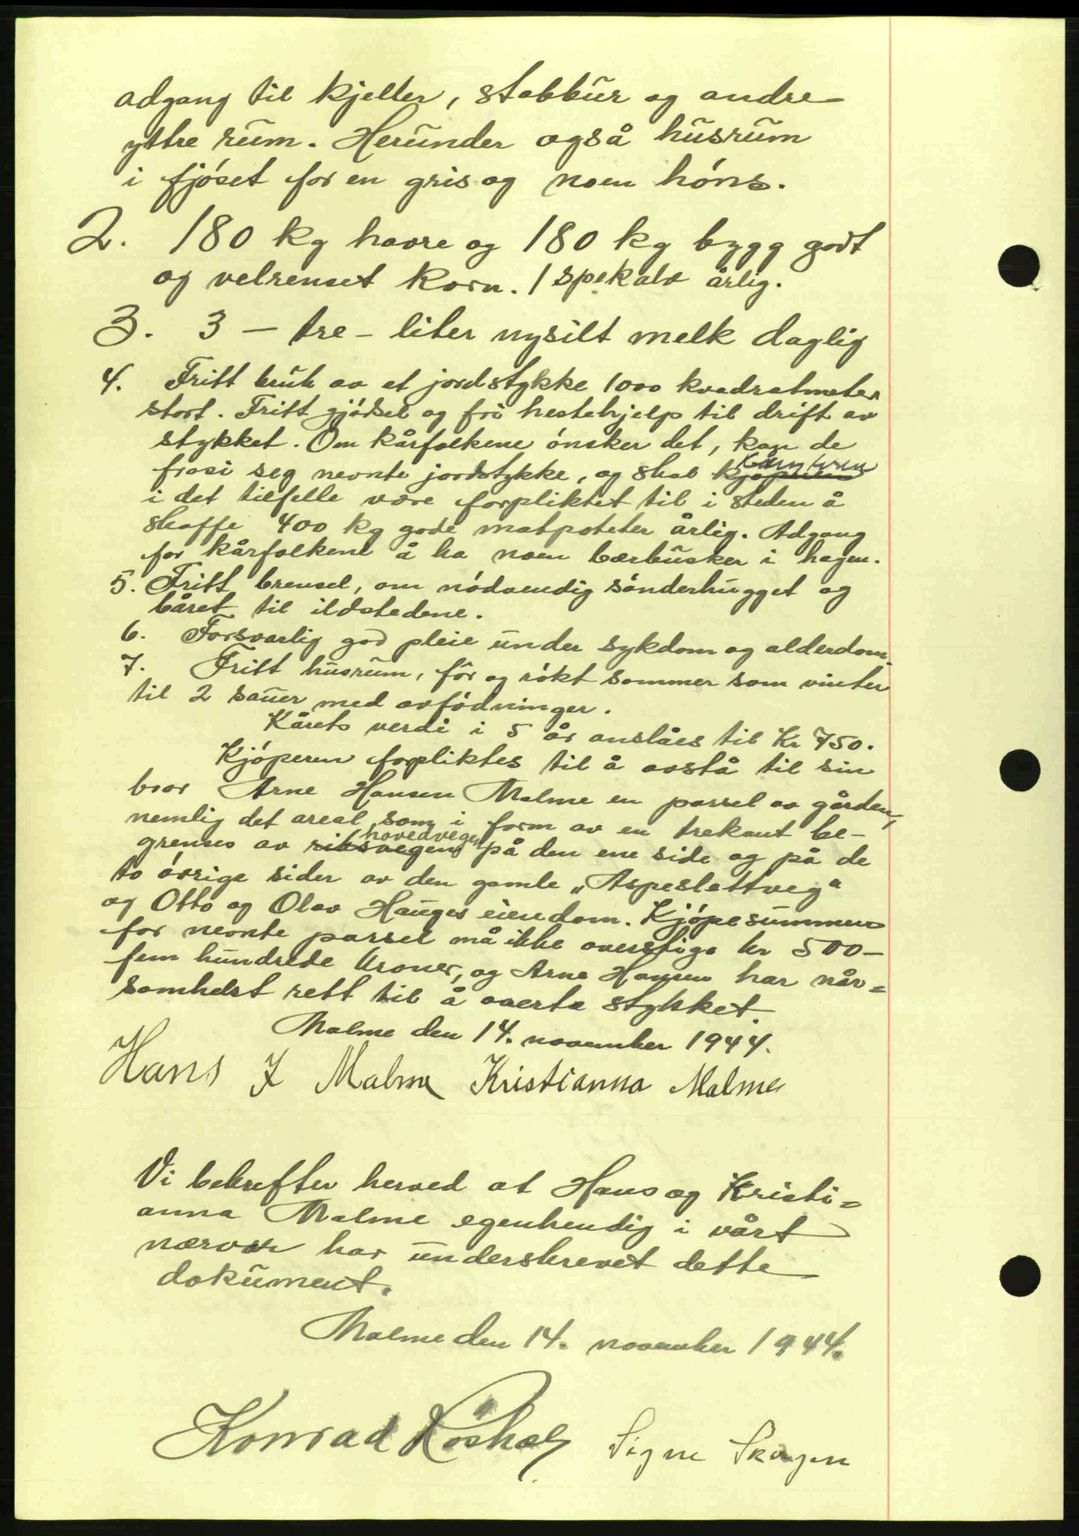 adgang til kjeller, stabbur og andre
ytre rum. Herunder også husrum
i fjøset for en gris og noen høns.
2. 180 kg havre og 180 kg bygg godt
og velrenset korn. 1 spekalv årlig.
3. 3 – tre – liter nysilt melk daglig
4. Fritt bruk av et jordstykke 1000 kvadratmeter
stort. Fritt gjødsel og fri hestehjelp til drift av
stykket. Om kårfolkene ønsker det, kan de
frasi seg nevnte jordstykke, og skal kjøperen
i det tilfelle være forpliktet til i steden å
skaffe 400 kg gode matpoteter årlig. Adgang
for kårfolkene å ha noen bærbusker i hagen.
5. Fritt brensel, om nødvendig sønderhugget og
båret til ildstedene.
6. Forsvarlig god pleie under sykdom og alderdom.
7. Fritt husrum, fôr og røkt sommer som vinter
til 2 sauer med avfødninger.
Kårets verdi i 5 år anslåes til Kr 750.
Kjøperen forpliktes til å avstå til sin
bror Arne Hansen Malme en parsel av gården,
nemlig det areal som i form av en trekant be-
hovedvegen
grenses av riksvegen på den ene side og på de
to øvrige sider av den gamle „Aspeslettveg"
og Otto og Olav Hauges eiendom. Kjøpesummen
for nevnte parsel må ikke overstige kr 500–
fem hundrede kroner, og Arne Hansen har når=
somhelst rett til å overta stykket.
Malme den 14. november 1944.
Hans J Malme Kristianna Malme
Vi bekrefter herved at Hans og Kristi=
anna Malme egenhendig i vårt
nærvær har underskrevet dette
dokument.
Malme den 14. november 1944.
Konrad Signe Skogen